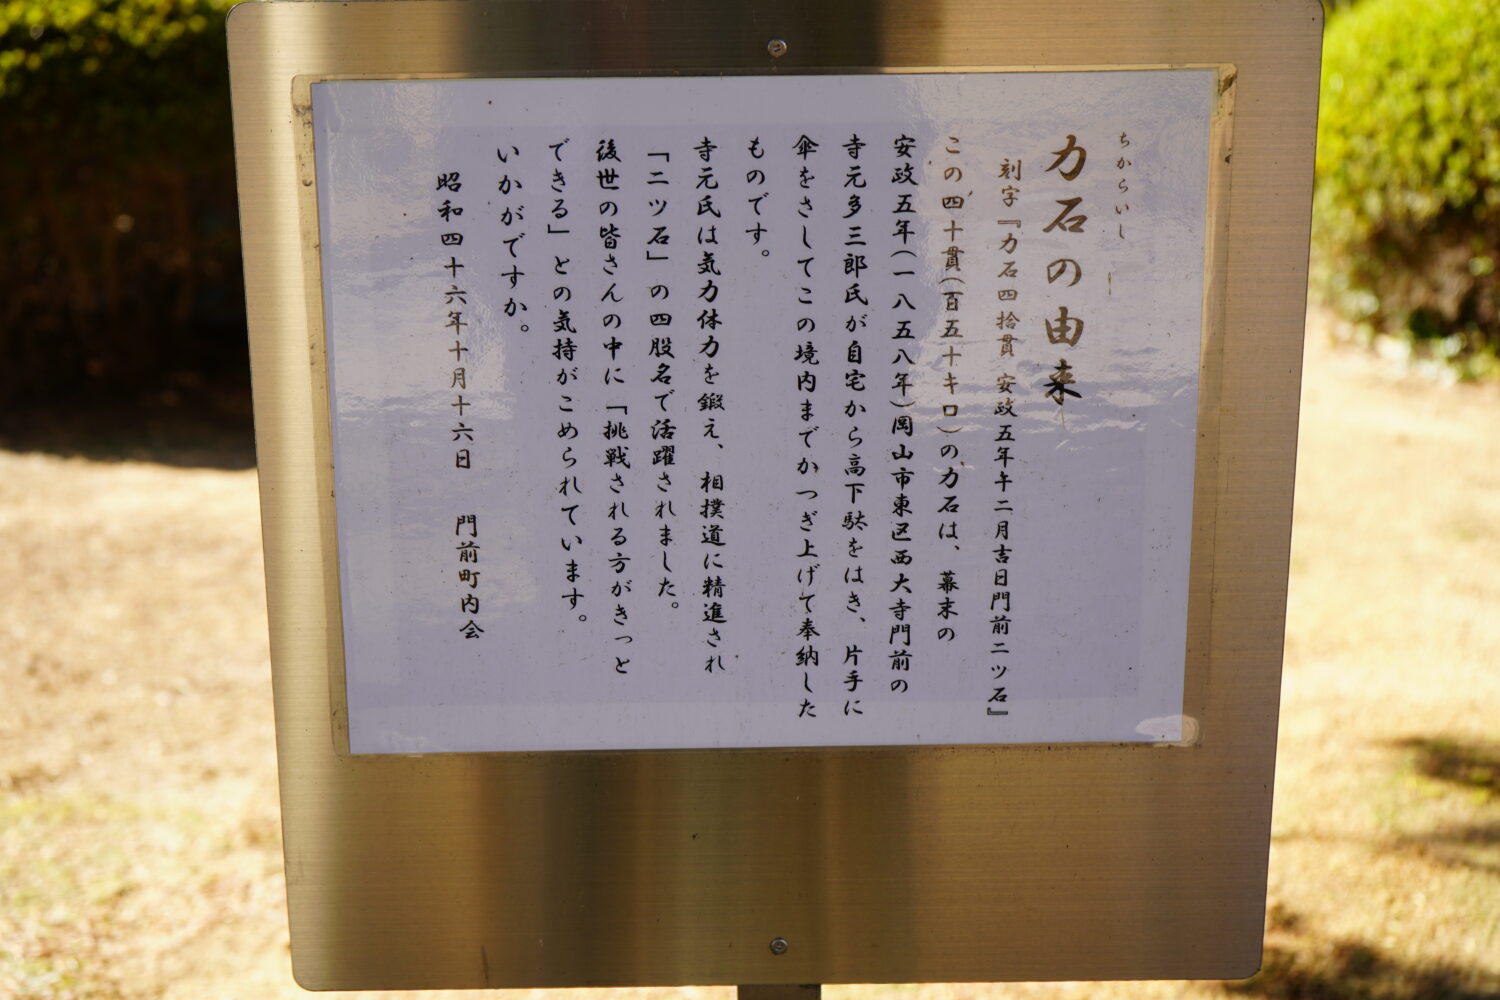 ちからいし
力石の由来
刻字『力石四拾貫 安政五年午二月吉日門前二ツ石』
この四十貫(百五十キロ)の力石は、幕末の
安政五年(一八五八年)岡山市東区西大寺門前の
寺元多三郎氏が自宅から高下駄をはき、片手に
傘をさしてこの境内までかつぎ上げて奉納した
ものです。
寺元氏は気力体力を鍛え、相撲道に精進され
「二ツ石」の四股名で活躍されました。
後世の皆さんの中に「挑戦される方がきっと
できる」との気持がこめられています。
いかがですか。
昭和四十六年十月十六日 門前町内会